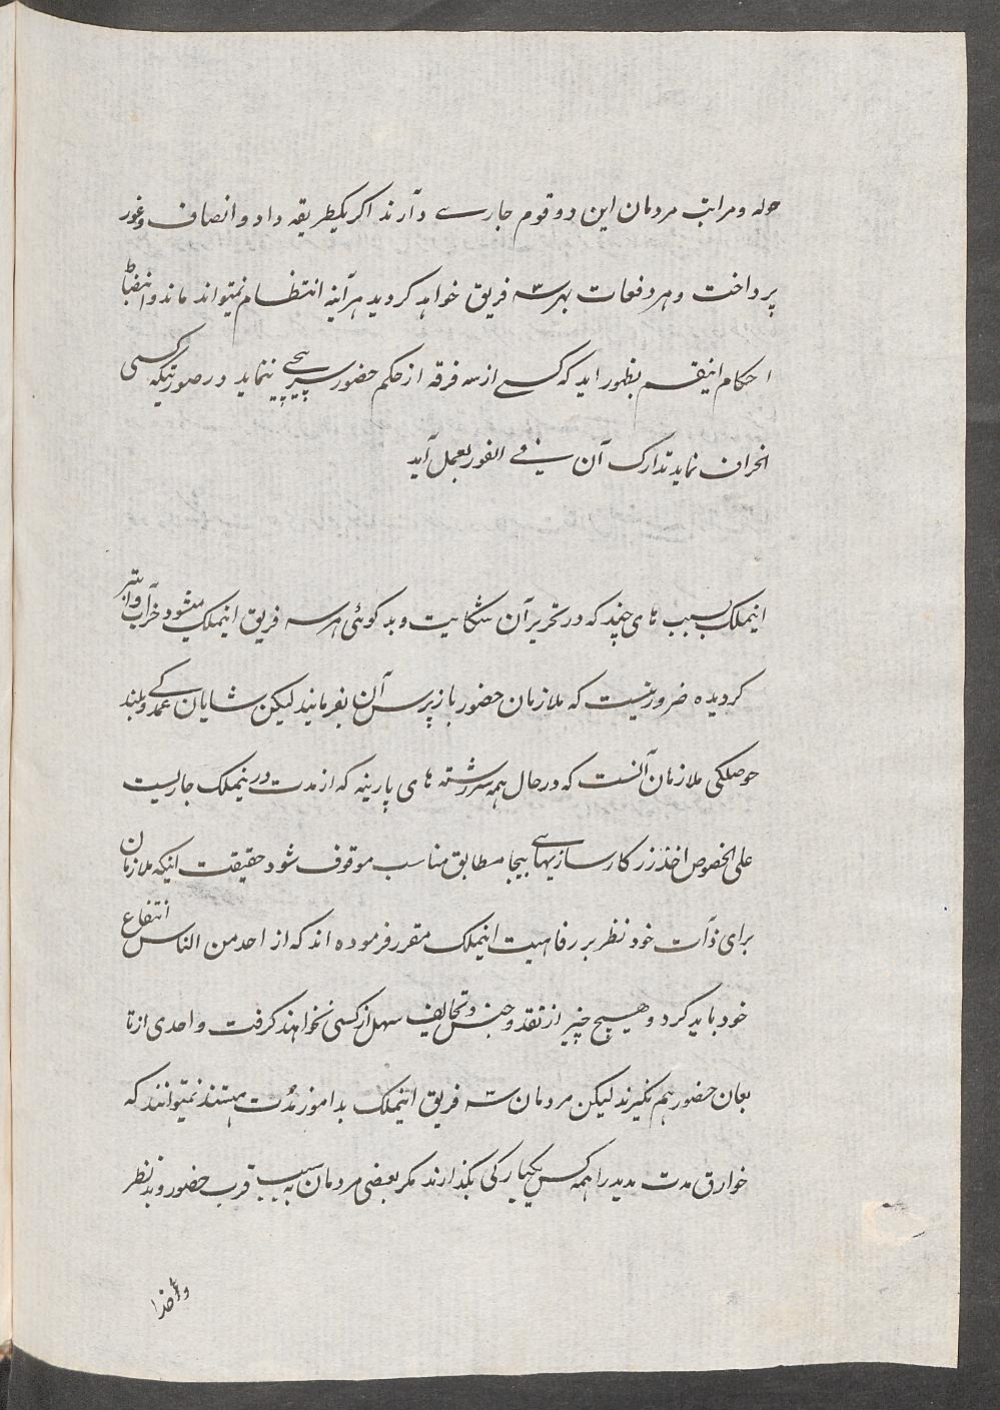 حوله و مراتب مردمان این دو قوم جاری دارند اکر بیکطریقه داد و انصاف و غور
پرداخت و هر دفعات بهر سه فریق خواهد کردید هر آینه انتظام نمیتواند ماند و انضباط
احکام اینقسم بظهور اید که کسی از سه فرقه از حکم حضور سرپیچی ننماید و در صورتیکه کسی
انحراف نماید تدارک آن فی الفور بعمل آید
اینملک بسبب های چند که در تحریر آن شکایت و بد کوئی هر سه فریق اینملک میشود خراب و ابتر
کردیده ضرور نیست که ملازمان حضور باز پرس آن بفرمایند لیکن شایان عمدکی و بلند
حوصلکی ملازمان آنست که در حال همه سررشته های پارینه که از مدت درینملک جاریست
علی الخصوص اخذ زر کارسازیهای بیجا مطابق مناسب موقوف شود حقیقت اینکه ملازمان
برای ذات خود نظر بر رفاهیت اینملک مقرر فرموده اند که از احد من الناس انتفاع
خود باید کرد و هیچ چیز از نقد و جنس و تحایف سهل از کسی نخواهند کرفت و احدی از تا
بعان حضور هم نکیرند لیکن مردمان سه فریق اینملک بد اموز مدت هستند نمیتوانند که
خوارق مدت مدید را همه کس یکبارکی بکذارند مکر بعضی مردمان به سبب قرب حضور و بد نظر
و اخذ